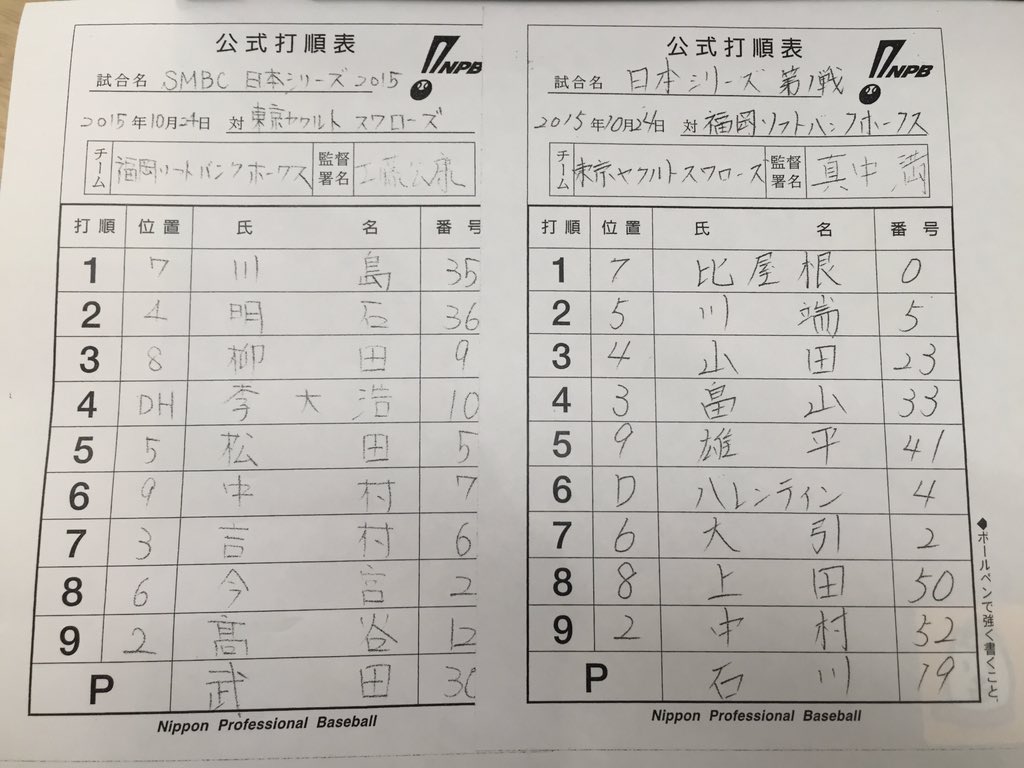 公式打順表
NPB
試合名 SMBC 日本シリーズ2015
2015年10月24日 対 東京ヤクルト スワローズ
チーム 福岡ソフトバンクホークス 監督署名 工藤公康
打順 位置 氏名 番号
1 7 川島 35
2 4 明石 36
3 8 柳田 9
4 DH 李大浩 10
5 5 松田 5
6 9 中村 7
7 3 吉村 6
8 6 今宮 2
9 2 髙谷 12
P 武田 30
Nippon Professional Baseball
公式打順表
NPB
試合名 日本シリーズ 第1戦
2015年10月24日 対 福岡ソフトバンクホークス
チーム 東京ヤクルトスワローズ 監督署名 真中 満
打順 位置 氏名 番号
1 7 比屋根 0
2 5 川端 5
3 4 山田 23
4 3 畠山 33
5 9 雄平 41
6 D バレンティン 4
7 6 大引 2
8 8 上田 50
9 2 中村 52
P 石川 19
Nippon Professional Baseball
◆ボールペンで強く書くこと